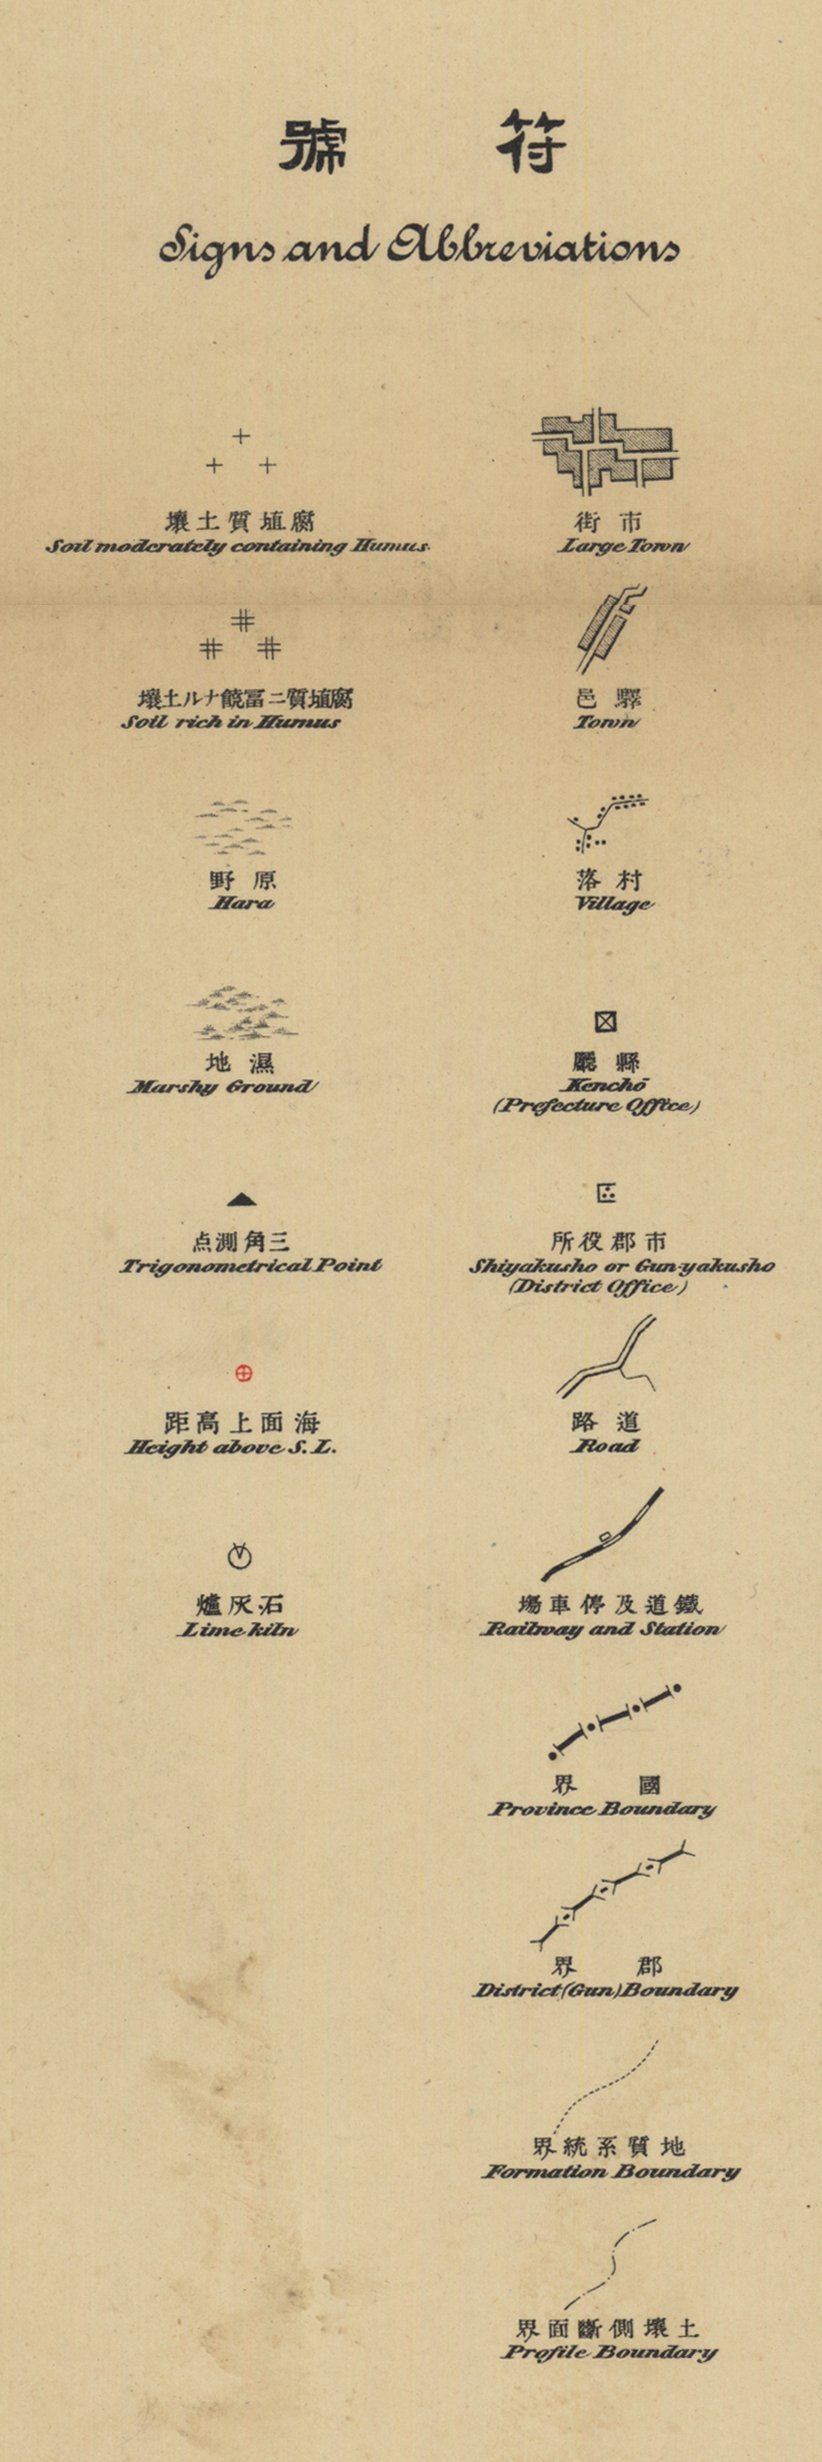 符號
Signs and Abbreviations
市街
Large Town
驛邑
Town
村落
Village
縣廳
Kenchō
(Prefecture Office)
市郡役所
Shiyakusho or Gun-yakusho
(District Office)
道路
Road
鐵道及停車場
Railway and Station
國界
Province Boundary
郡界
District (Gun) Boundary
地質系統界
Formation Boundary
土壤側斷面界
Profile Boundary
腐埴質土壤
Soil moderately containing Humus
腐埴質ニ冨饒ナル土壤
Soil rich in Humus
原野
Hara
濕地
Marshy Ground
三角測点
Trigonometrical Point
海面上高距
Height above S. L.
石灰爐
Lime-kiln